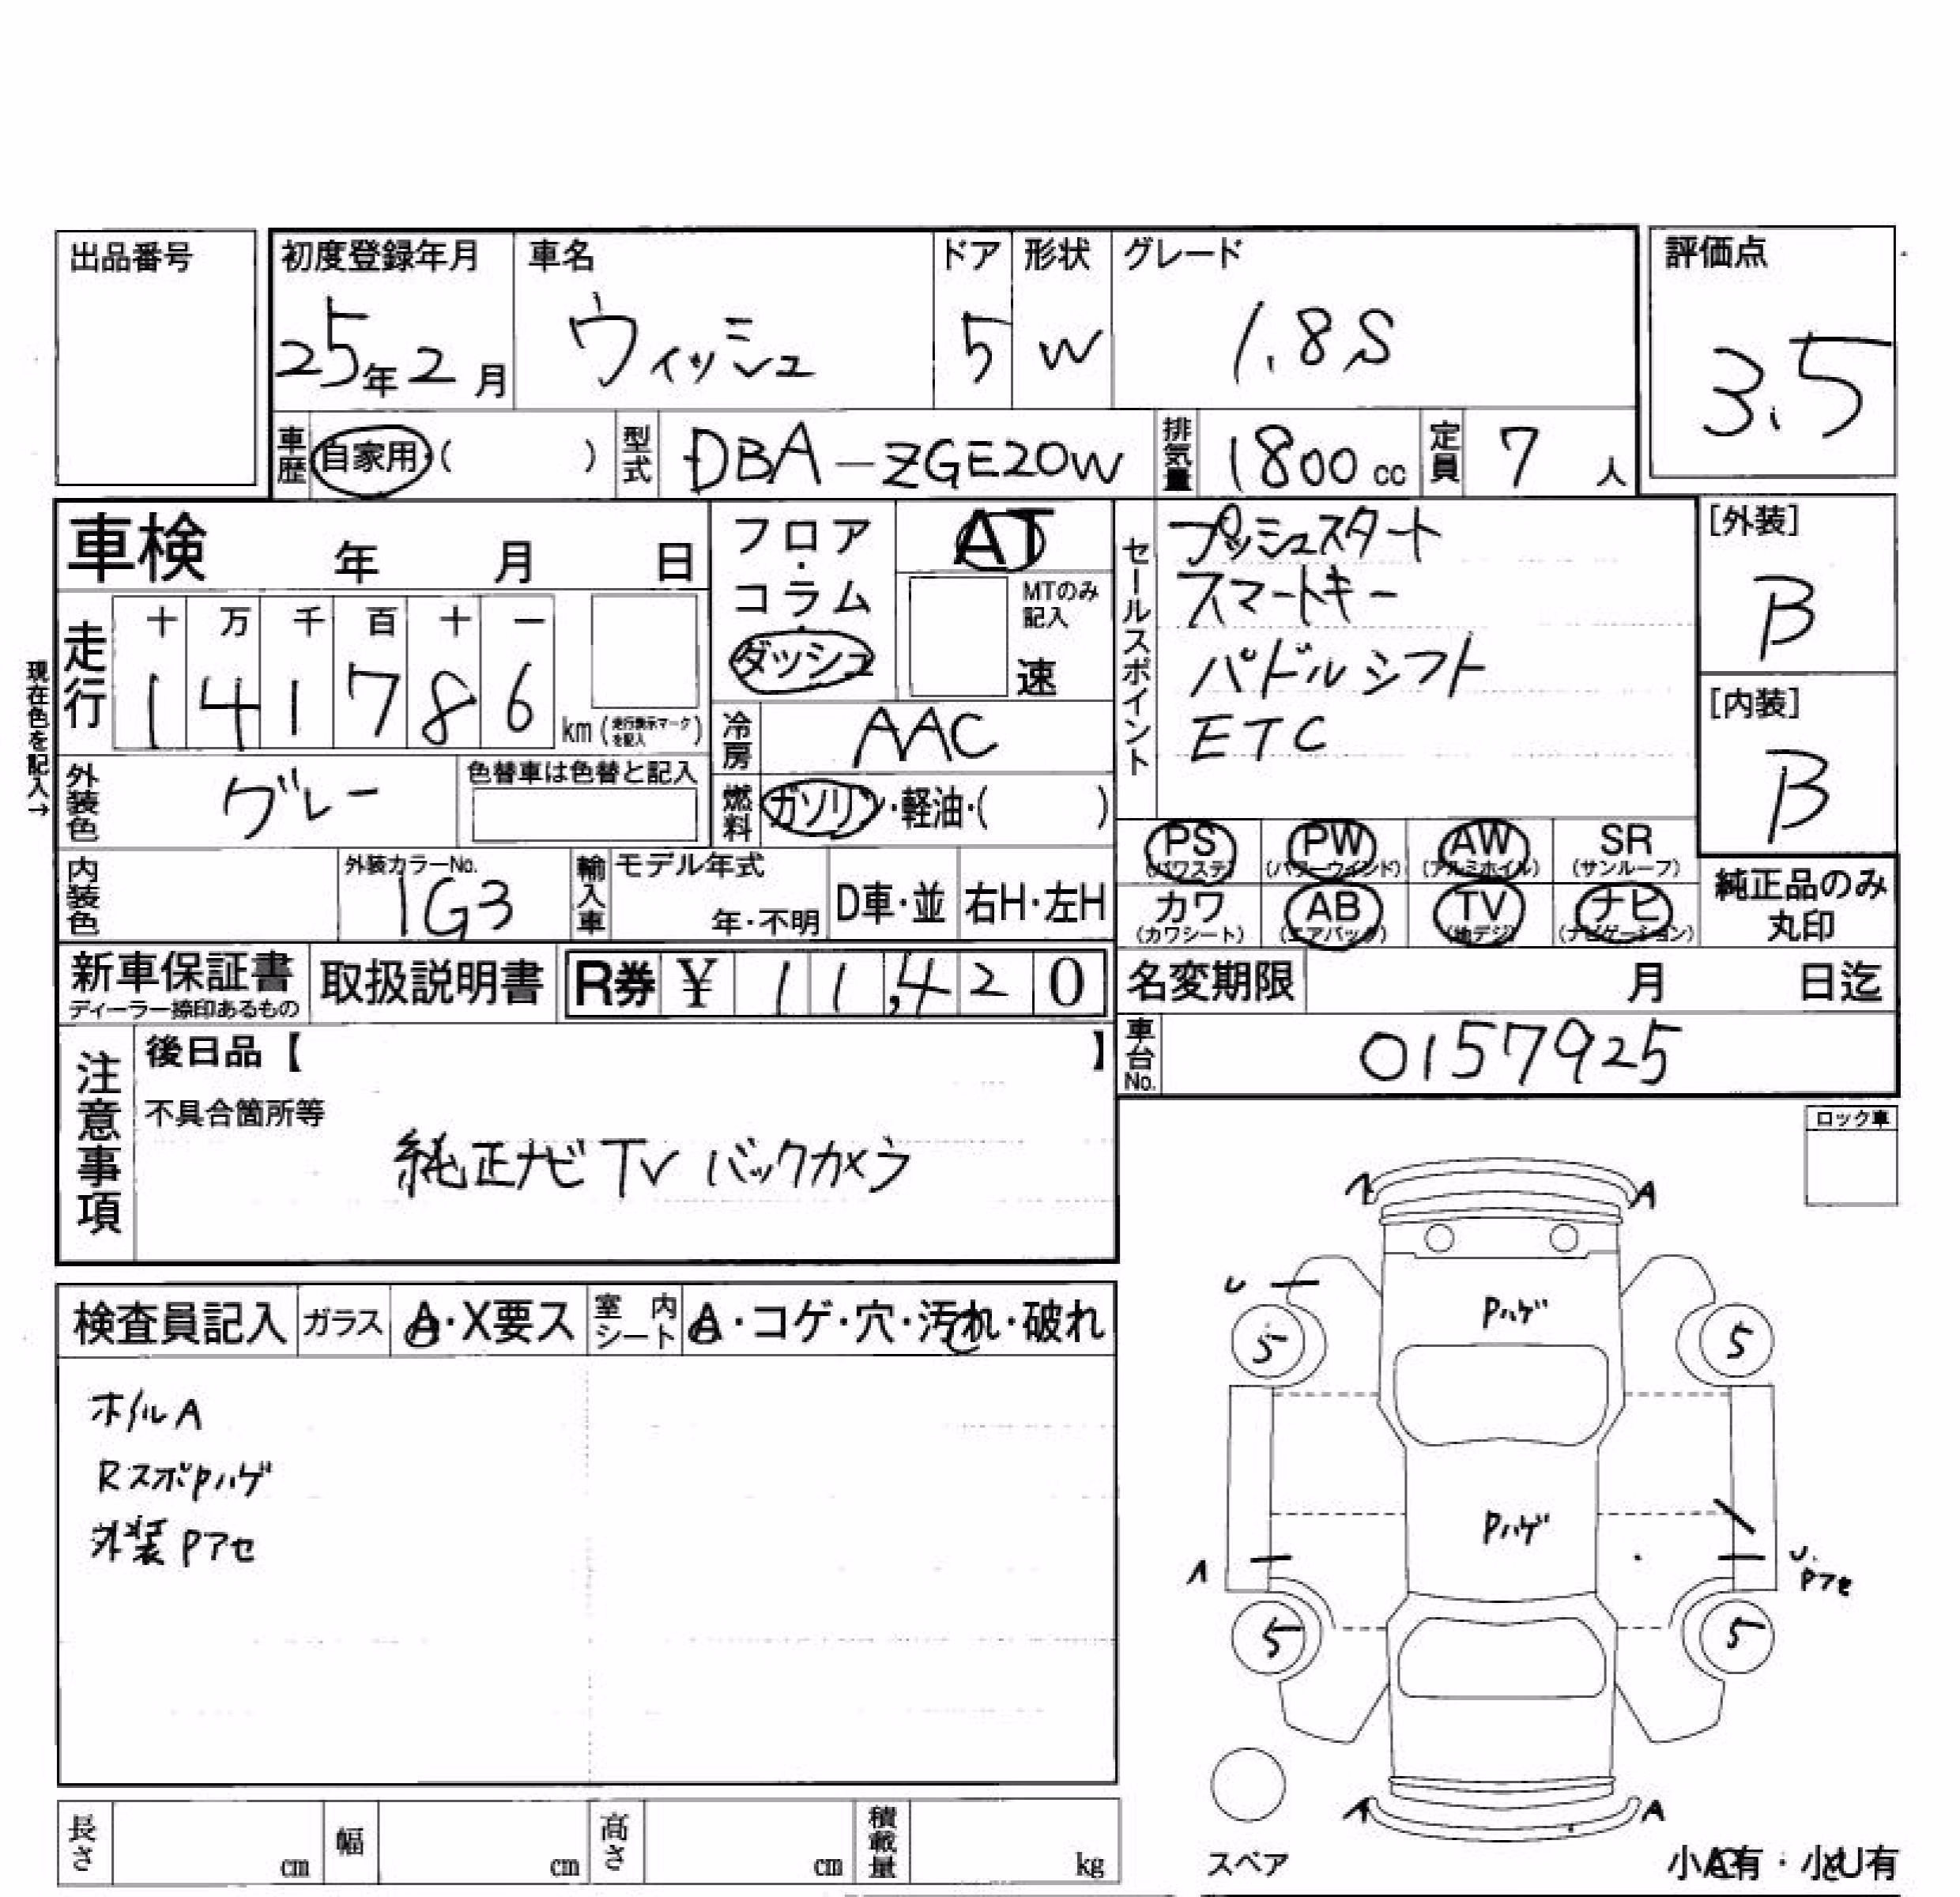 出品番号
初度登録年月 車名 ドア 形状 グレード 評価点
25年2月 ウィッシュ 5 W 1.8S 3.5
車歴 自家用・( ) 型式 DBA-ZGE20W 排気量 1800cc 定員 7人
車検 年 月 日
フロア・コラム・ダッシュ
AT
MTのみ記入
速
セールスポイント
プッシュスタート
スマートキー
パドルシフト
ETC
[外装]
B
[内装]
B
現在色を記入→
走行 十 万 千 百 十 一
1 4 1 7 8 6 km(走行表示マークを記入)
冷房 AAC
外装色 グレー 色替車は色替と記入
燃料 ガソリン・軽油・( )
PS (パワステ) PW (パワーウインド) AW (アルミホイル) SR (サンルーフ)
カワ (カワシート) AB (エアバック) TV (地デジ) ナビ (ナビゲーション)
純正品のみ丸印
内装色 外装カラーNo. 1G3 輸入車 モデル年式 年・不明 D車・並 右H・左H
新車保証書 ディーラー捺印あるもの 取扱説明書 R券 ¥ 11,420
名変期限 月 日迄
車台No. 0157925
注意事項
後日品【 】
不具合箇所等
純正ナビ TV バックカメラ
ロック車
A A
U
Pハゲ
5 5
Pハゲ
A U. Pアセ
5 5
A A
スペア
小A有・小U有
検査員記入 ガラス A・X要ス 室内シート A・コゲ・穴・汚れ・破れ
ホイルA
RスポPハゲ
外装Pアセ
長さ cm 幅 cm 高さ cm 積載量 kg